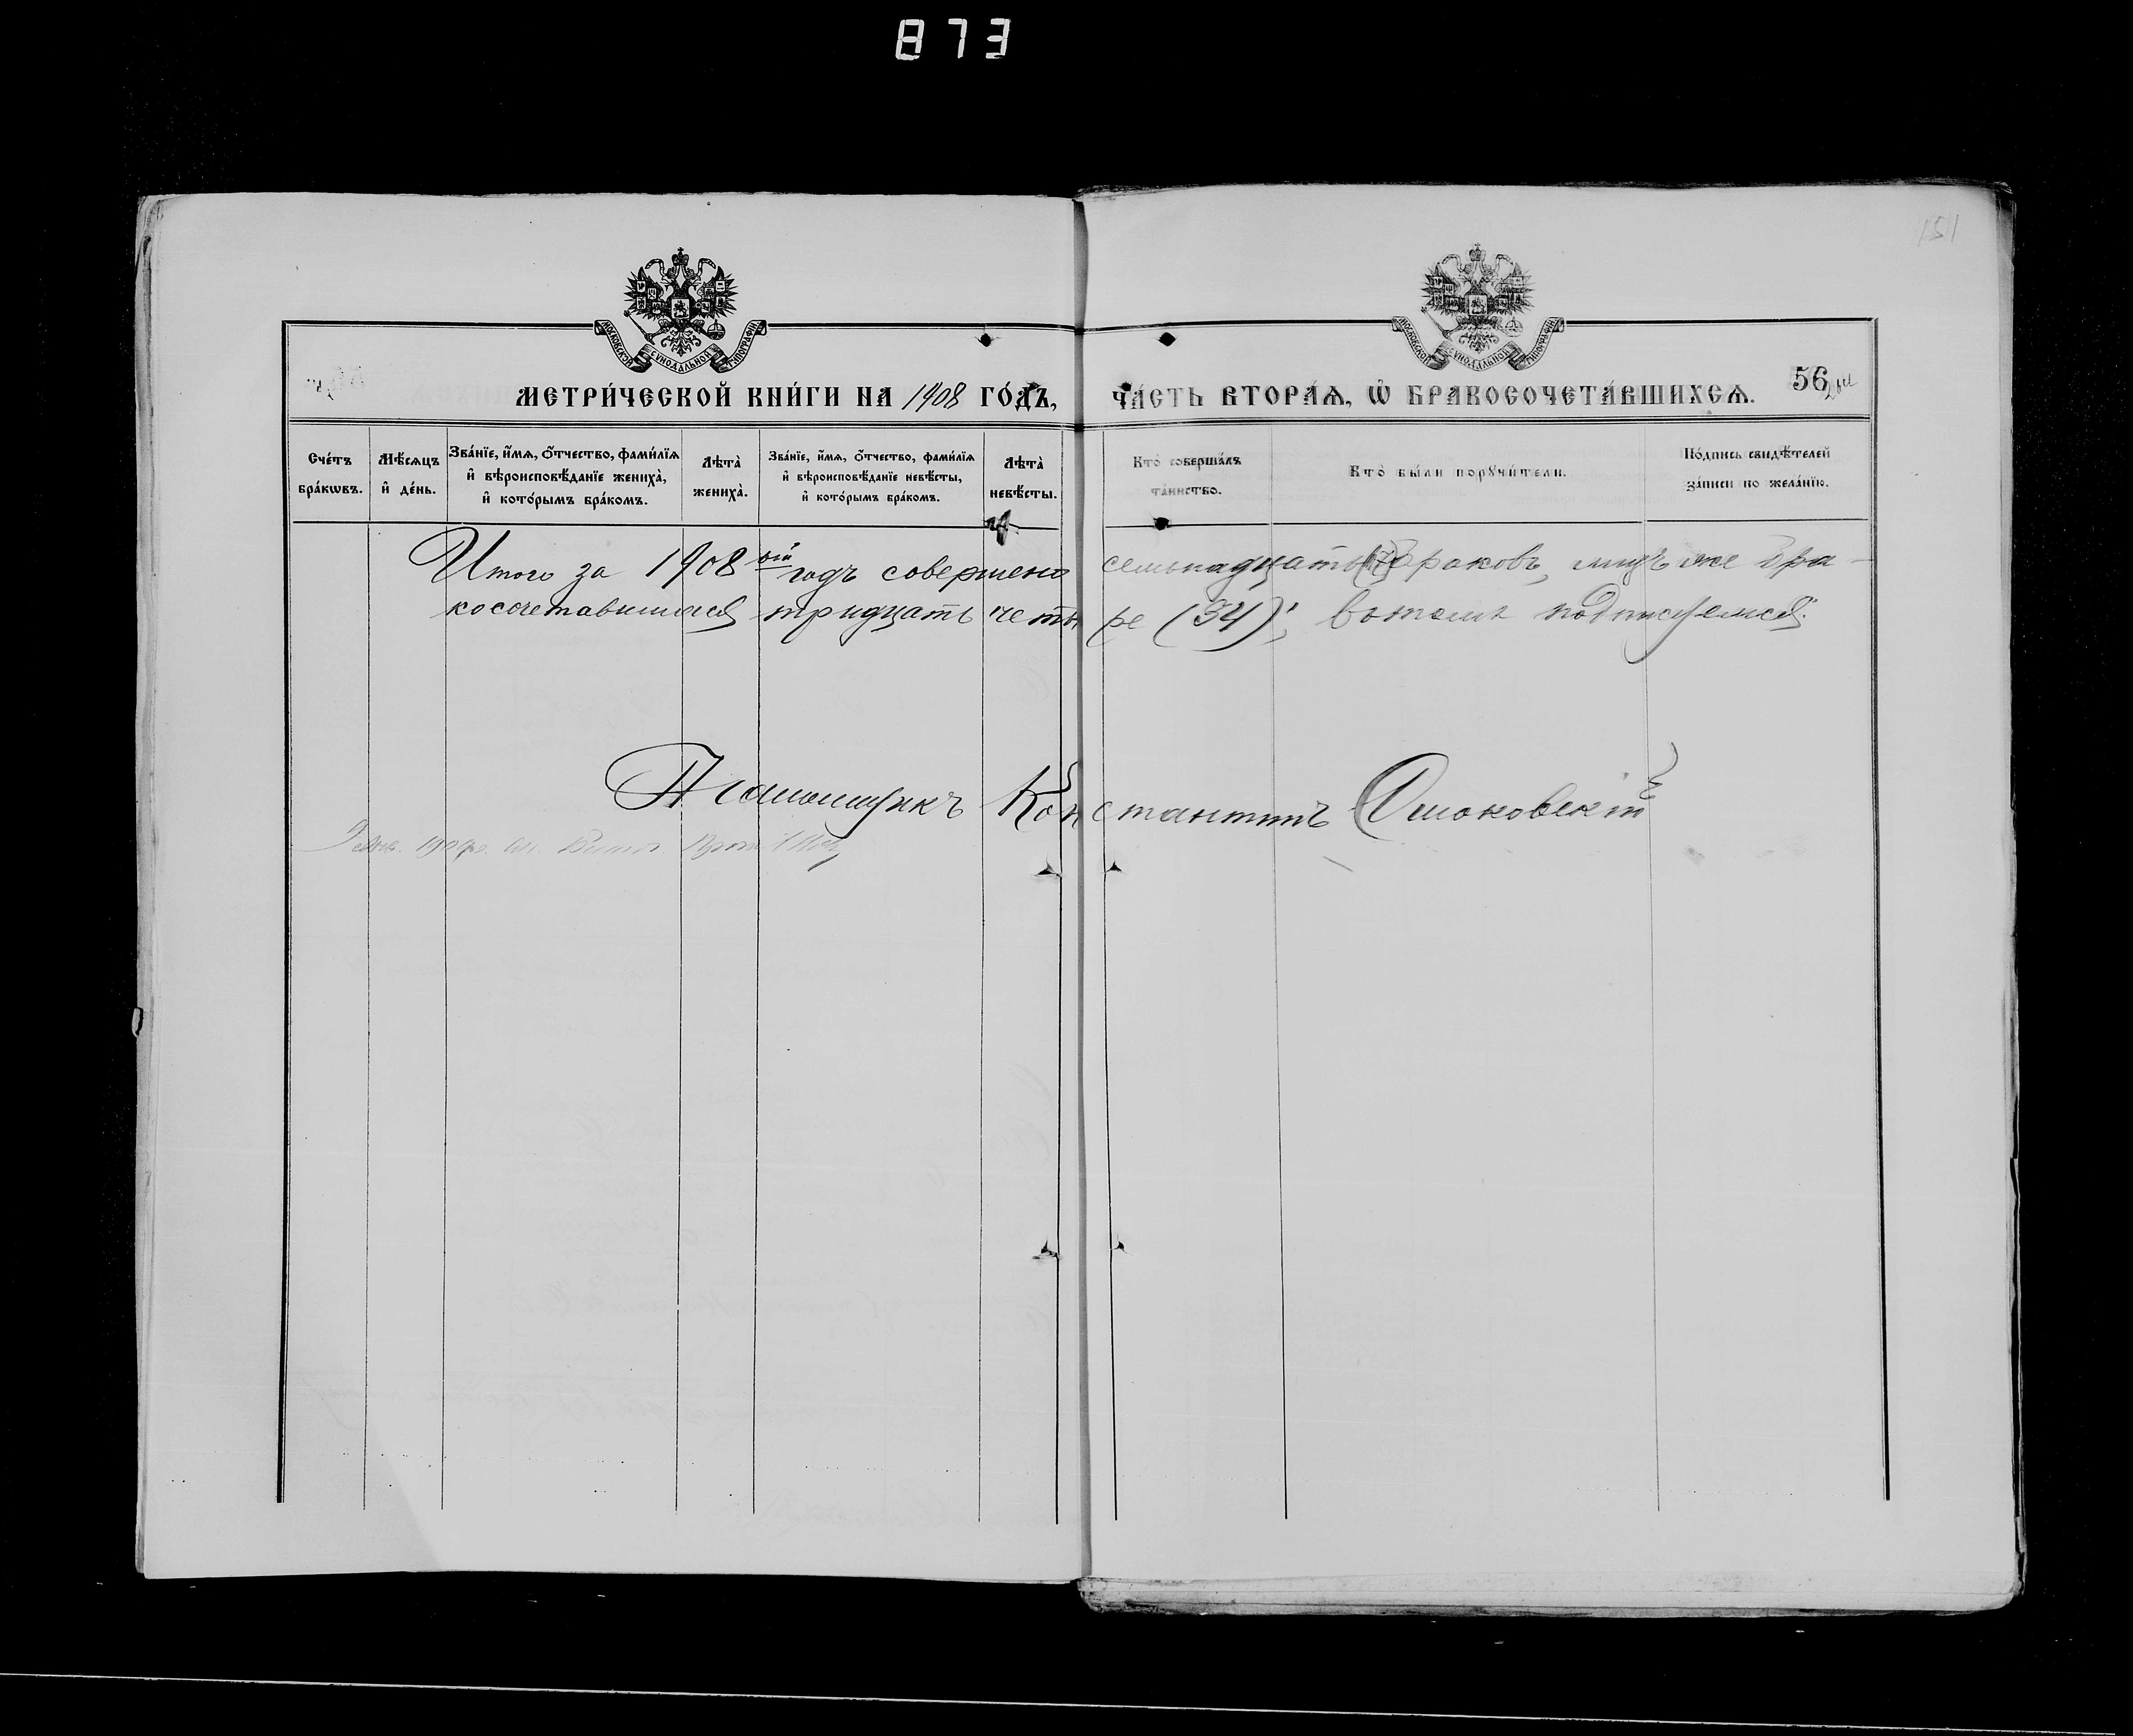 873
151
МОСКОВСКОЙ СѴНОДАЛЬНОЙ ТИПОГРАФІИ
МОСКОВСКОЙ СѴНОДАЛЬНОЙ ТИПОГРАФІИ
МЕТРИ́ЧЕСКОЙ КНИ́ГИ НА 1908 ГО́ДЪ, ЧА́СТЬ ВТОРА́Ѧ, Ѽ БРАКОСОЧЕТА́ВШИХСѦ. 56
Сче́тъ бра́кѡвъ.
Мѣ́сѧцъ и҆ де́нь.
Зва́нїе, и҆́мѧ, ѻ҆́тчество, фами́лїѧ и҆ вѣроисповѣ́данїе жениха̀, и҆ кото́рымъ бра́комъ.
Лѣта̀ жениха̀.
Зва́нїе, и҆́мѧ, ѻ҆́тчество, фами́лїѧ и҆ вѣроисповѣ́данїе невѣ́сты, и҆ кото́рымъ бра́комъ.
Лѣта̀ невѣ́сты.
Кто̀ соверша́лъ та́инство.
Кто̀ бы́ли порꙋчи́тели.
По́дпись свидѣ́телей за́писи по жела́нїю.
Итого за 1908ой годъ совершено семьнадцать (17) браковъ, лицъ же бра-
косочетавшихся тридцать четыре (34); въ томъ подписуемся:
Псаломщикъ Константинъ